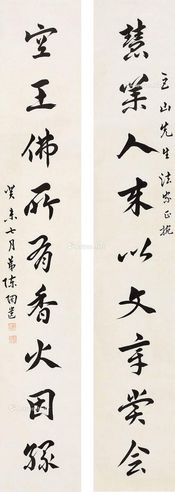 山先生法家正腕
慧業人来以文章賞会
空王佛所有香火因緣
癸未七月弟陳陶遺